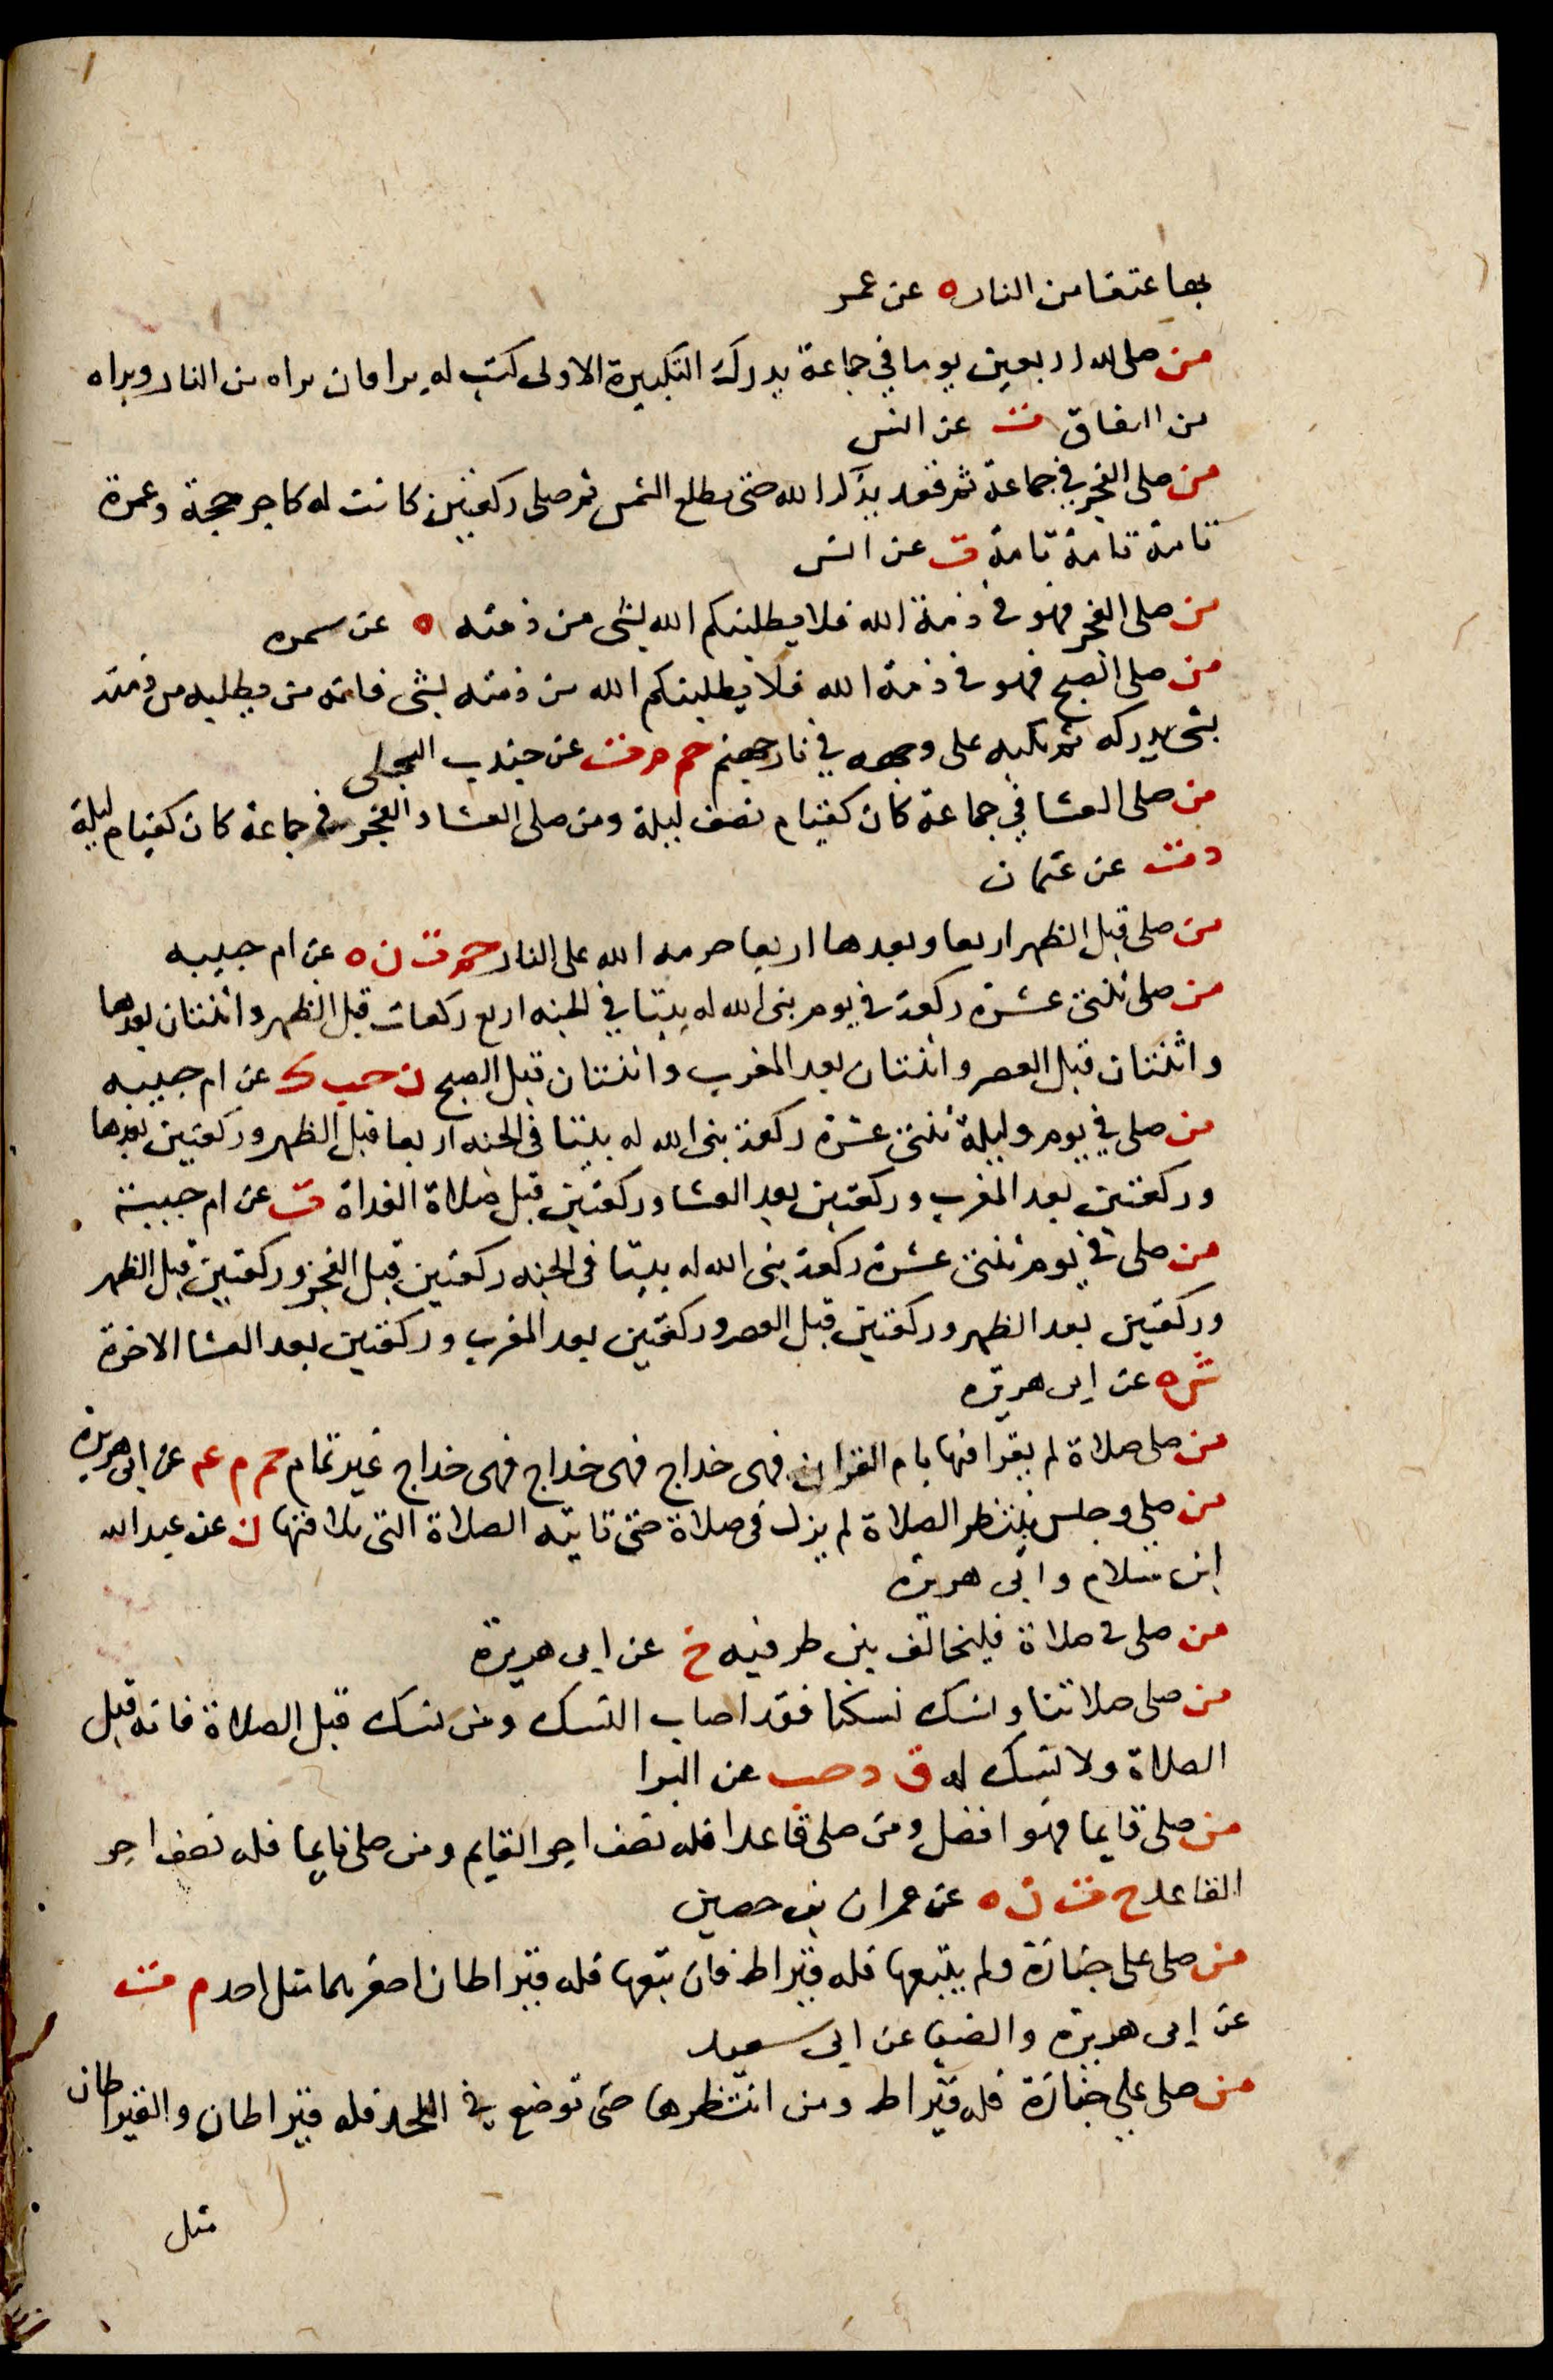 بها عتقا من النار ه عن عمر
من صلى لله اربعين يوما في جماعة يدرك التكبيرة الاولى كتب له براتان براه من النار وبراه
من النفاق ت عن انس
من صلى الفجر في جماعة ثم قعد يذكر الله حتى تطلع الشمس ثم صلى ركعتين كانت له كاجر حجة وعمرة
تامة تامة تامة ت عن انس
من صلى الفجر فهو في ذمة الله فلا يطلبنكم الله بشى من ذمته ه عن سمره
من صلى الصبح فهو في ذمة الله فلا يطلبنكم الله من ذمته بشى فانه من يطلبه من ذمته
بشى يدركه ثم يكبه على وجهه في نار جهنم حم م ت عن جندب البجلى
من صلى العشا في جماعة كان كقيام نصف ليلة ومن صلى العشا والفجر في جماعة كان كقيام ليلة
د ت عن عثمان
من صلى قبل الظهر اربعا وبعدها اربعا حرمه الله على النار حم ت ن ه عن ام حبيبه
من صلى ثنتى عشرة ركعة في يوم بنى الله له بيتا في الجنه اربع ركعات قبل الظهر واثنتان بعدها
واثنتان قبل العصر واثنتان بعد المغرب واثنتان قبل الصبح ن حب ك عن ام حبيبه
من صلى في يوم وليلة ثنتى عشرة ركعة بنى الله له بيتا في الجنه اربعا قبل الظهر وركعتين بعدها
وركعتين بعد المغرب وركعتين بعد العشا وركعتين قبل صلاة الغداة ت عن ام حبيبة
من صلى في يوم ثنتى عشرة ركعة بنى الله له بيتا في الجنه ركعتين قبل الفجر وركعتين قبل الظهر
وركعتين بعد الظهر وركعتين قبل العصر وركعتين بعد المغرب وركعتين بعد العشا الاخرة
ش ه عن ابى هريره
من صلى صلاة لم يقرا فيها بام القران فهى خداج فهى خداج فهى خداج غير تمام حم م عم عن ابى هريرة
من صلى وجلس ينتظر الصلاة لم يزل في صلاة حتى تاتيه الصلاة التى تلاقيها ن عن عبد الله
ابن سلام وابى هريره
من صلى في صلاة فليخالف بين طرفيه خ عن ابى هريرة
من صلى صلاتنا ونسك نسكنا فقد اصاب النسك ومن نسك قبل الصلاة فانه قبل
الصلاة ولا نسك له ق د حب عن البرا
من صلى قايما فهو افضل ومن صلى قاعدا فله نصف اجر القايم ومن صلى نايما فله نصف اجر
القاعد خ ت ن ه عن عمران بن حصين
من صلى على جنازة ولم يتبعها فله قيراط فان تبعها فله قيراطان اصغرهما مثل احد م ت
عن ابى هريرة والضيا عن ابى سعيد
من صلى على جنازة فله قيراط ومن انتظرها حتى توضع في اللحد فله قيراطان والقيراطان
مثل